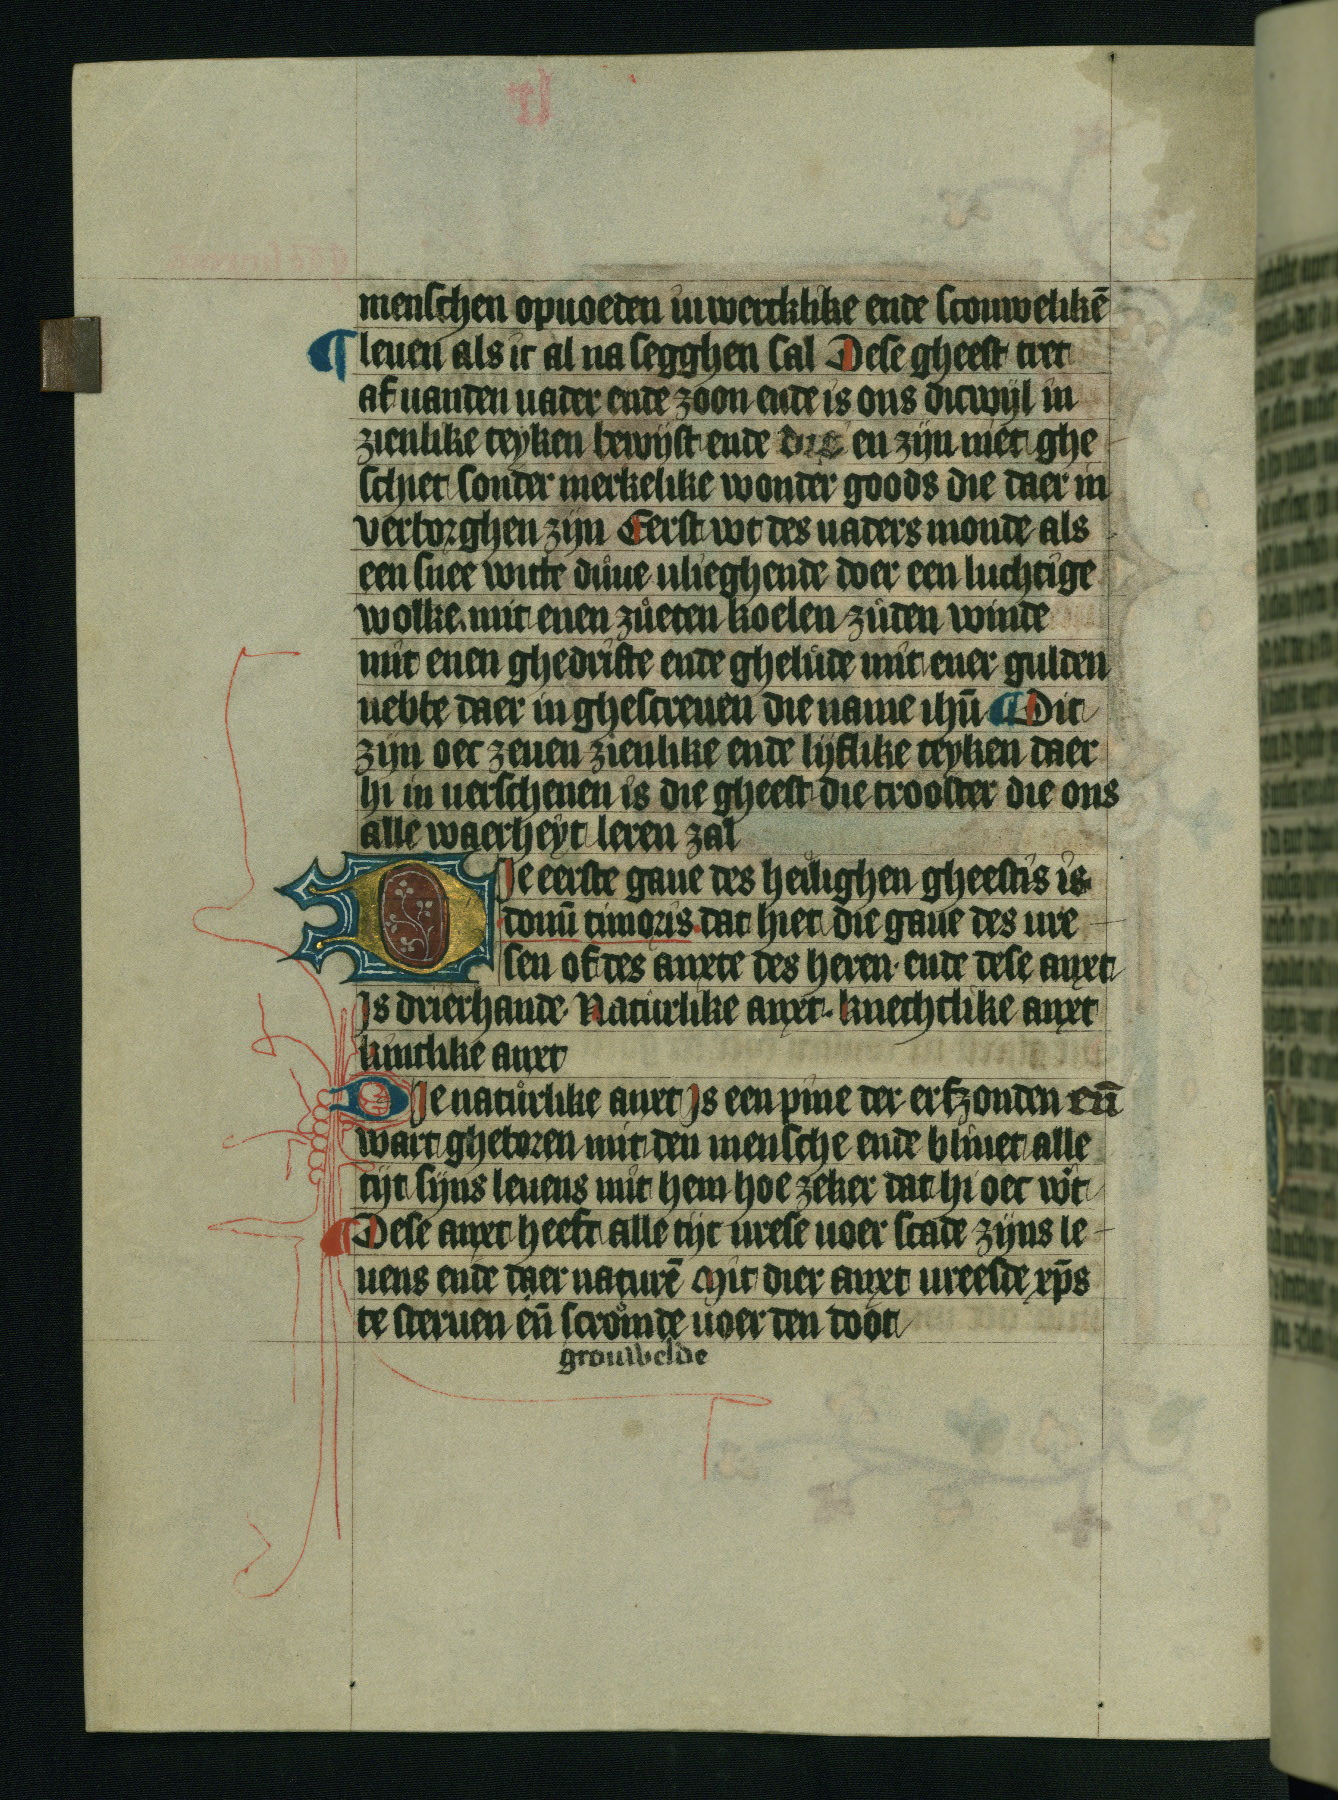 menschen opuoeden in wercklike ende scouwelikē
leuen als ic al na segghen sal Dese gheest tret
af uanden uader ende zoon ende is ons dicwyl in
zienlike teyken bewijst ende die en zijn niet ghe
schiet sonder merkelike wonder goods die daer in
verborghen zijn Eerst wt des uaders monde als
een snee witte duue vlieghende doer een luchtige
wolke mit enen zueten koelen zuden winde
mit enen ghedriste ende ghelude mit ener gulden
nebbe daer in ghescreuen die name ihū Dit
zijn oec zeuen zienlike ende lijflike teyken daer
hi in uerschenen is die gheest die trooster die ons
alle waerheyt leren zal
Die eerste gaue des heilighen gheestis is
donū timoris dat hiet die gaue des vre
sen of des anxte des heren ende dese anxt
Is drierhande Naturlike anxt knechtlike anxt
kintlike anxt
Die naturlike anxt Is een pine der erfzonden eñ
wart gheboren mit den mensche ende bliuet alle
tijt sijns leuens mit hem hoe zeker dat hi oec wt
Dese anxt heeft alle tijt vrese uoer scade zijns le
uens ende daer naturē Mit dier anxt vreesde xp̄s
te steruen eñ scroemde uoer den doot
grouwelde